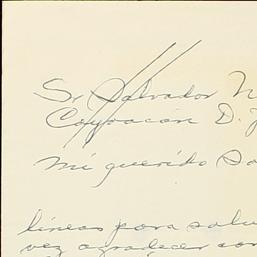 Sr Salvador N
Coyoacán D. F
Mi querido Sa
líneas para salu
vez agradecer con